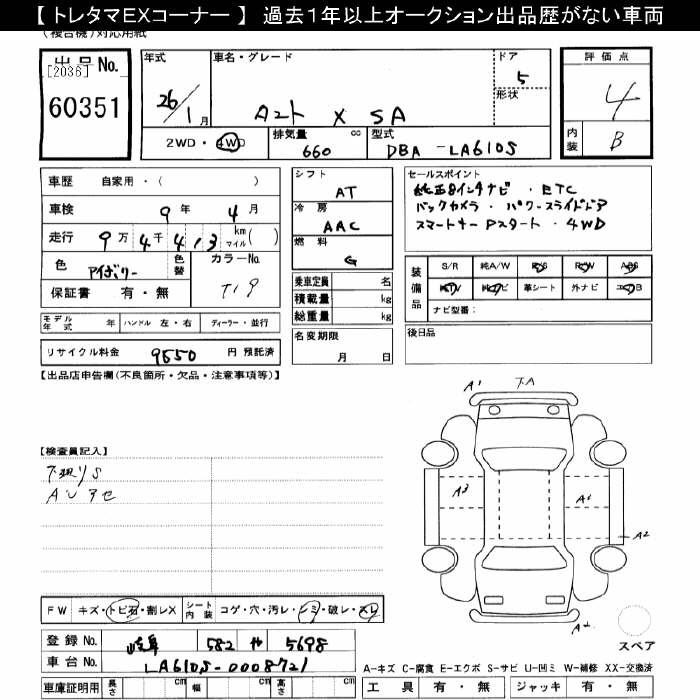 【 トレタマEXコーナー 】 過去1年以上オークション出品歴がない車両
(複合機)対応用紙
出品 No.
[2036]
60351
年式
26/1月
車名・グレード
タント X SA
ドア
5
形状
2WD・4WD
排気量 cc
660
型式
DBA-LA610S
評価点
4
内装
B
車歴 自家用・( )
車検 9年 4月
走行 9万4千4,13 km マイル( )
色 アイボリー
色替
カラーNo.
T19
保証書 有・無
シフト
AT
冷房
AAC
燃料
G
乗車定員 名
積載量 kg
総重量 kg
セールスポイント
純正8インチナビ・ETC
バックカメラ・パワースライドドア
スマートキーPスタート・4WD
装備品
S/R 純A/W P/S P/W ABS
純TV 純ナビ 革シート 外ナビ エアB
ナビ型番:
モデル年式 年 ハンドル 左・右 ディーラー・並行
リサイクル料金 9550 円 預託済
名変期限
月 日
後日品
【出品店申告欄(不良箇所・欠品・注意事項等)】
【検査員記入】
下廻りS
AUアセ
A1
下A
A3
A1
A2
A2
スペア
FW キズ・トビ石・割レX シート内装 コゲ・穴・汚レ・シミ・破レ・スレ
登録 No. 岐阜 582 や 5698
車台 No. LA610S-0008721
車庫証明用 長さ cm 幅 cm 高さ cm
A-キズ C-腐食 E-エクボ S-サビ U-凹ミ W-補修 XX-交換済
工具 有・無 ジャッキ 有・無